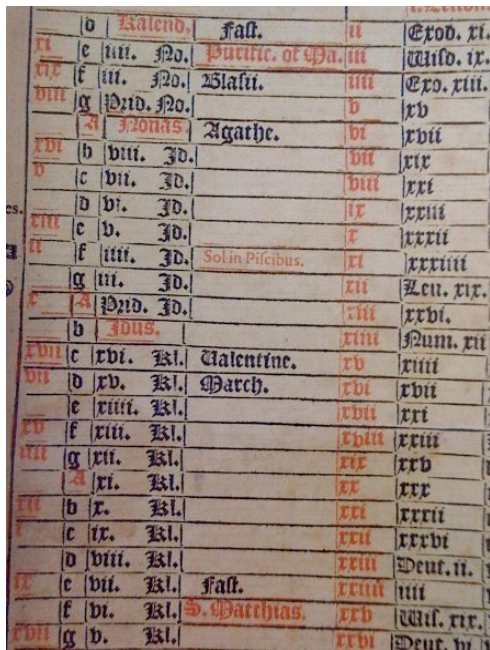 d Kalend. Fast. ii Exod. xi.
xi e iiii. No. Purific. of Ma. iii Wisd. ix.
xix f iii. No. Blasii. iiii Exo. xiii.
viii g Prid. No. v xv
A Nonas. Agathe. vi xvii
xvi b viii. Id. vii xix
v c vii. Id. viii xxi
d vi. Id. ix xxiii
xiii e v. Id. x xxxii
ii f iiii. Id. Sol in Piscibus. xi xxxiiii
g iii. Id. xii Leu. xix.
x A Prid. Id. xiii xxvi.
b Idus. xiiii Num. xii
xvii c xvi. Kl. Valentine. xv xiiii
vii d xv. Kl. March. xvi xvii
e xiiii. Kl. xvii xxi
xv f xiii. Kl. xviii xxiii
iiii g xii. Kl. xix xxv
A xi. Kl. xx xxx
xii b x. Kl. xxi xxxii
i c ix. Kl. xxii xxxvi
d viii. Kl. xxiii Deut. ii.
ix e vii. Kl. Fast. xxiiii iiii
f vi. Kl. S. Matthias. xxv Wis. xix.
xvii g v. Kl. xxvi Deut. vi